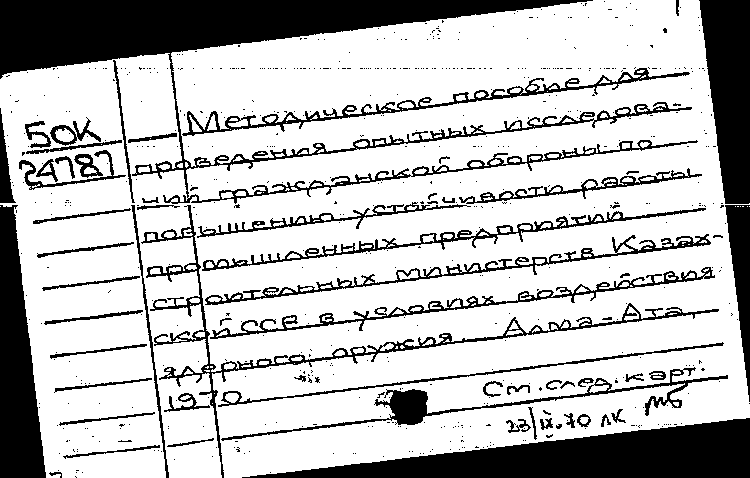 50К
24787
Методическое пособие для
проведения опытных исследова-
ний гражданской обороны по
повышению устойчивости работы
промышленных предприятий
строительных министерств Казах-
ской ССР в условиях воздействия
ядерного оружия. Алма-Ата,
1970.
См. след. карт.
23/IX.70 ЛК